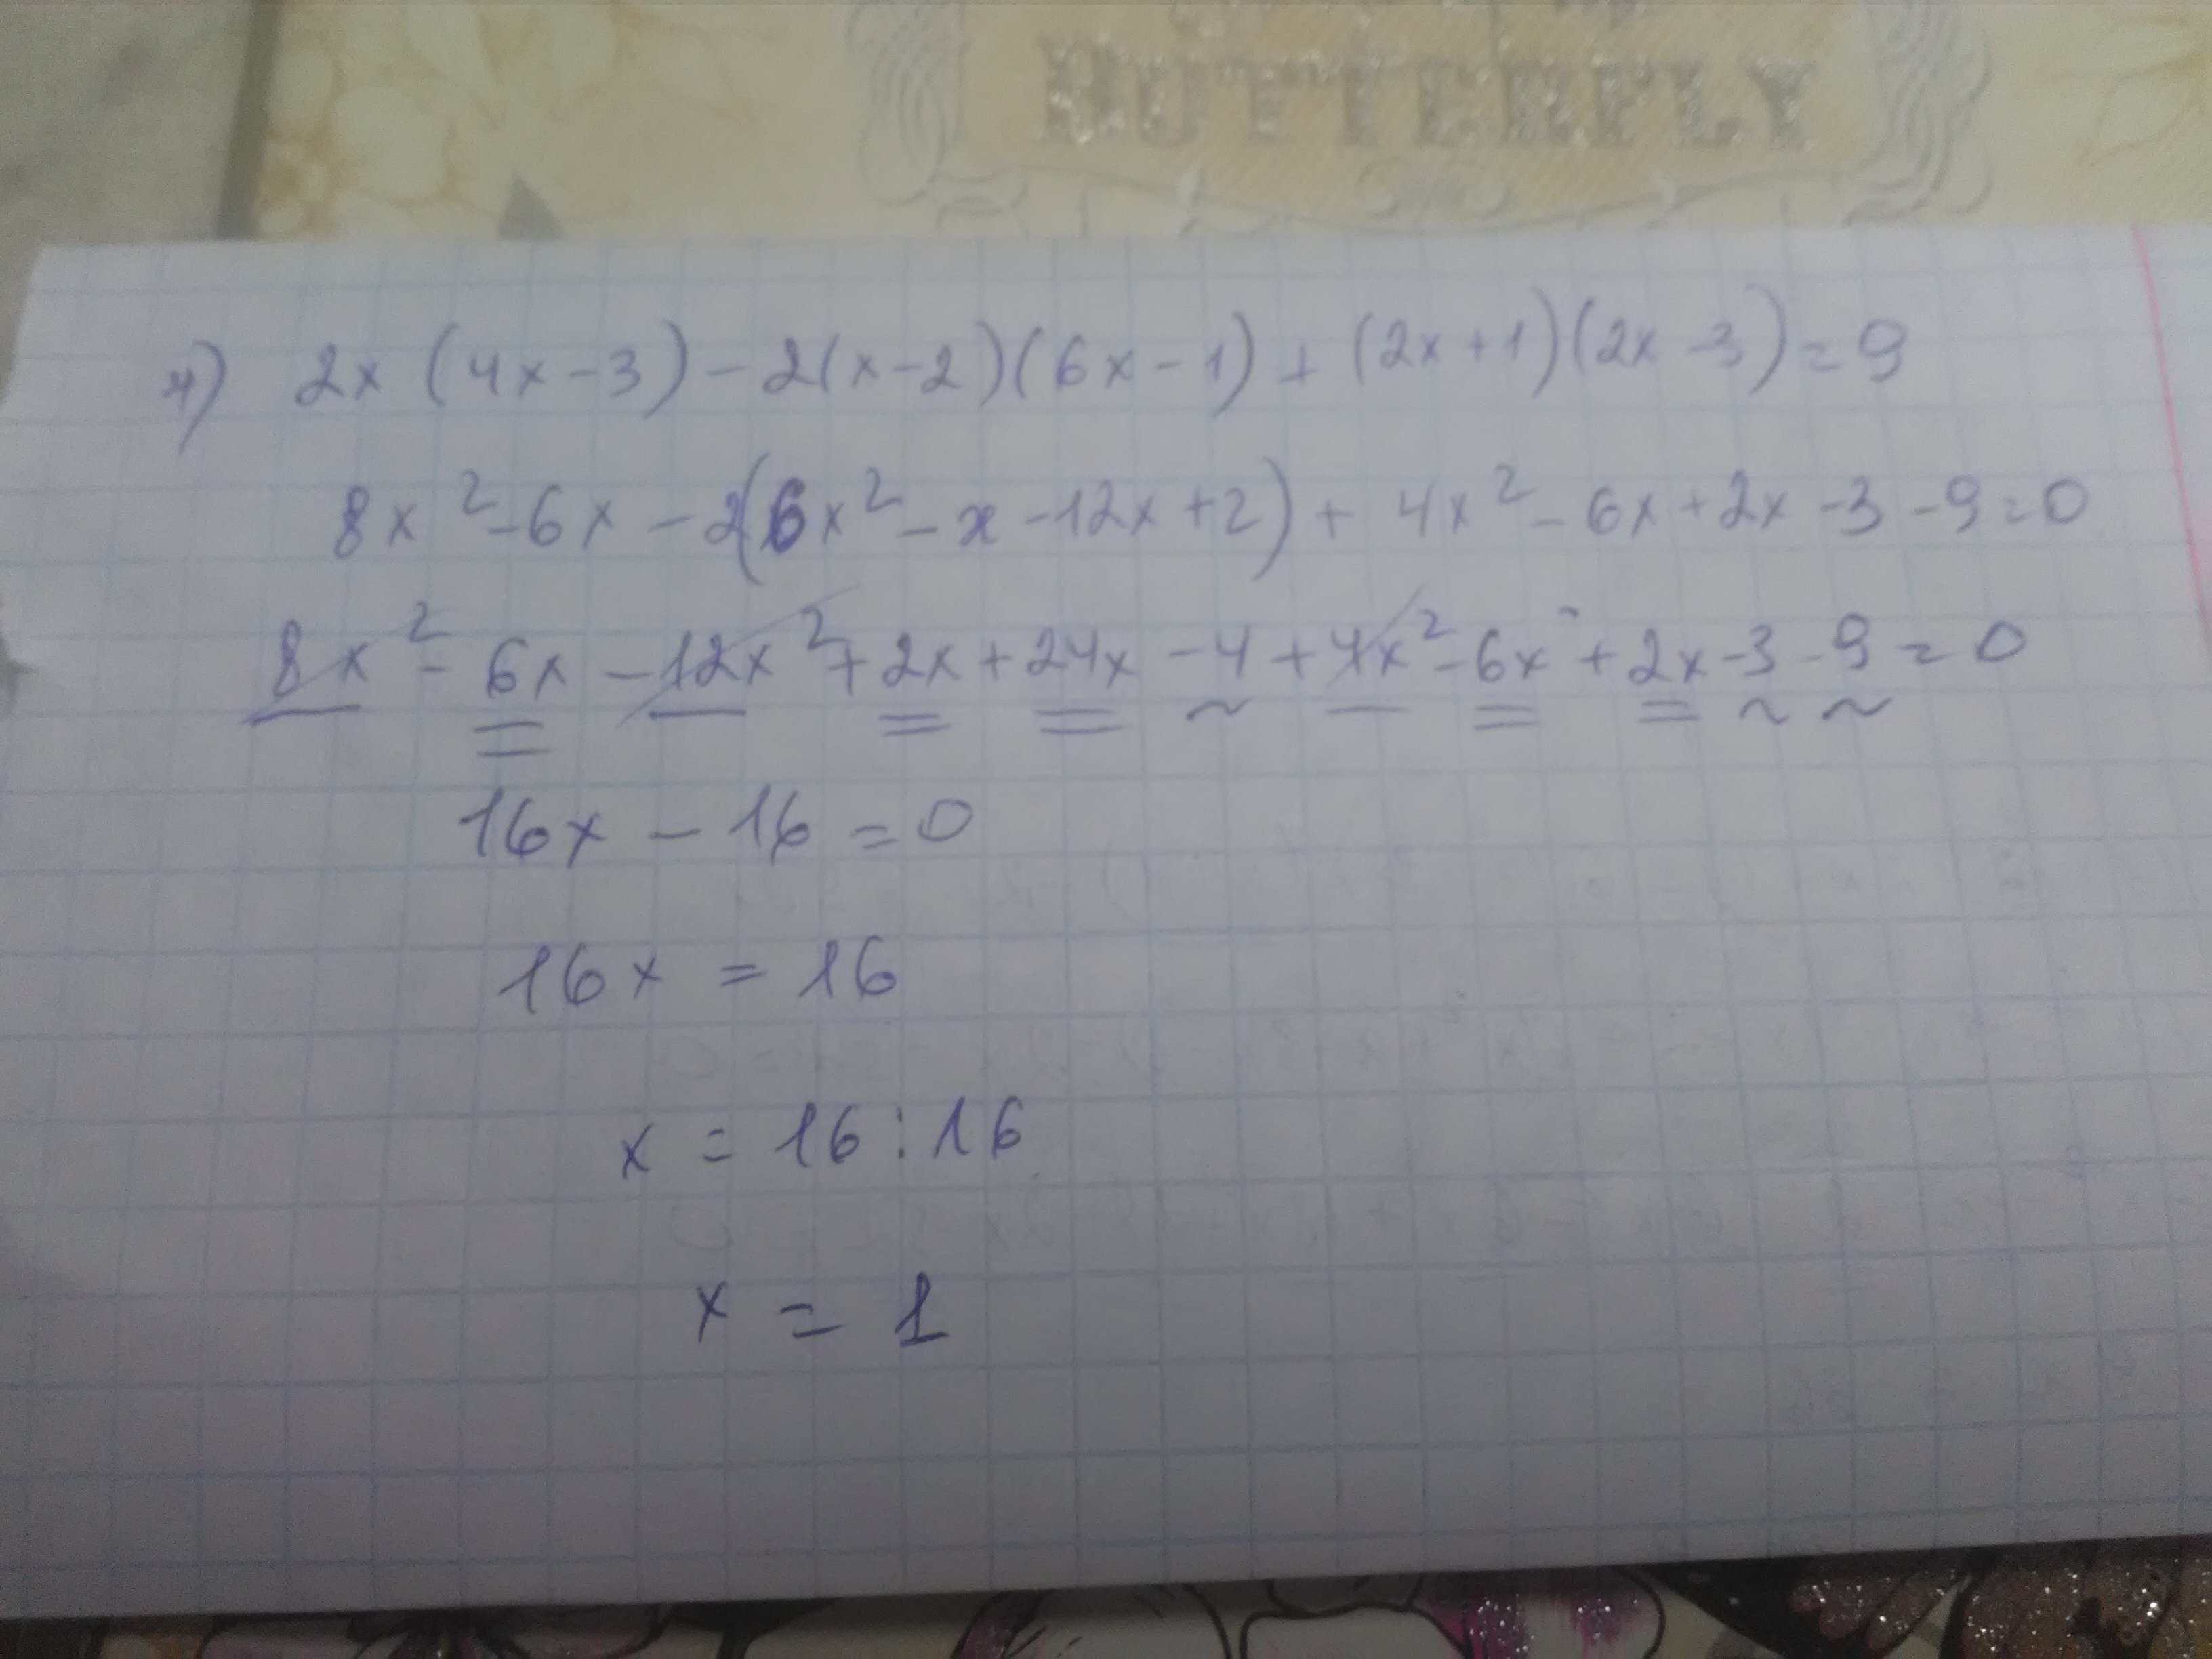 BUTTERFLY
4) 2x (4x-3) - 2(x-2)(6x-1) + (2x+1)(2x-3) = 9
8x² - 6x - 2(6x² - x - 12x + 2) + 4x² - 6x + 2x - 3 - 9 = 0
8x² - 6x - 12x² + 2x + 24x - 4 + 4x² - 6x + 2x - 3 - 9 = 0
16x - 16 = 0
16x = 16
x = 16 : 16
x = 1